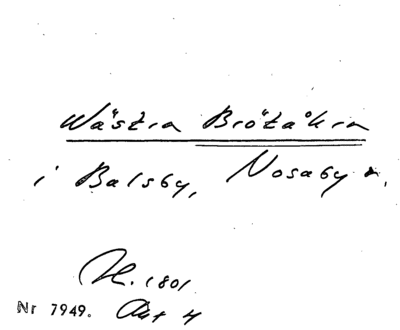 Wästra Brötåkra
i Balsby, Nosaby s.
H. 1801.
Nr 7949. Akt 4